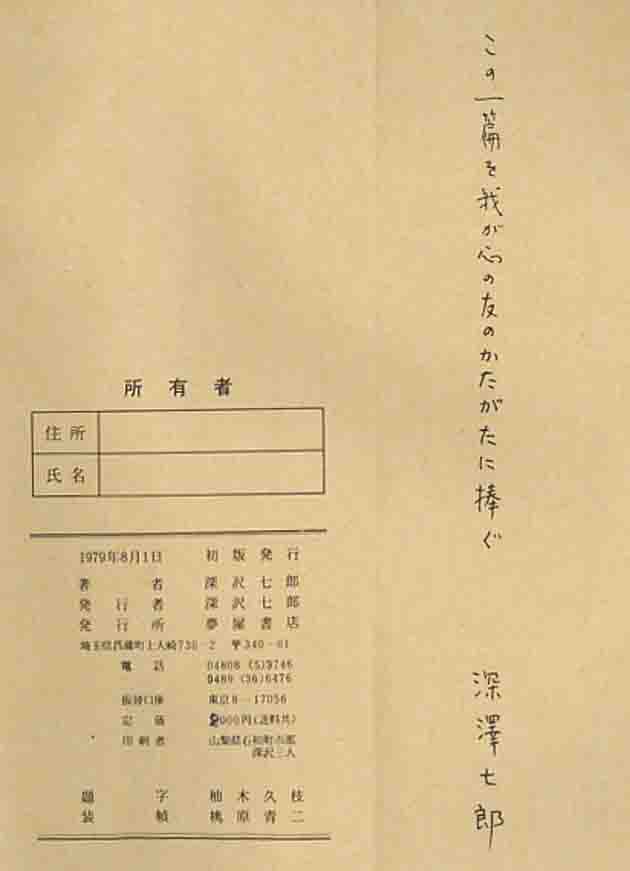 この一篇を我が心の友のかたがたに捧ぐ
深澤七郎
所有者
住所
氏名
1979年8月1日 初版発行
著者 深沢七郎
発行者 深沢七郎
発行所 夢屋書店
埼玉県菖蒲町上大崎738-2 〒340-01
電話 04808 (5)9746
0489 (36)6476
振替口座 東京8-17056
定価 2000円(送料共)
印刷者 山梨県石和町市部
深沢三人
題字 柚木久枝
装幀 桃原青二